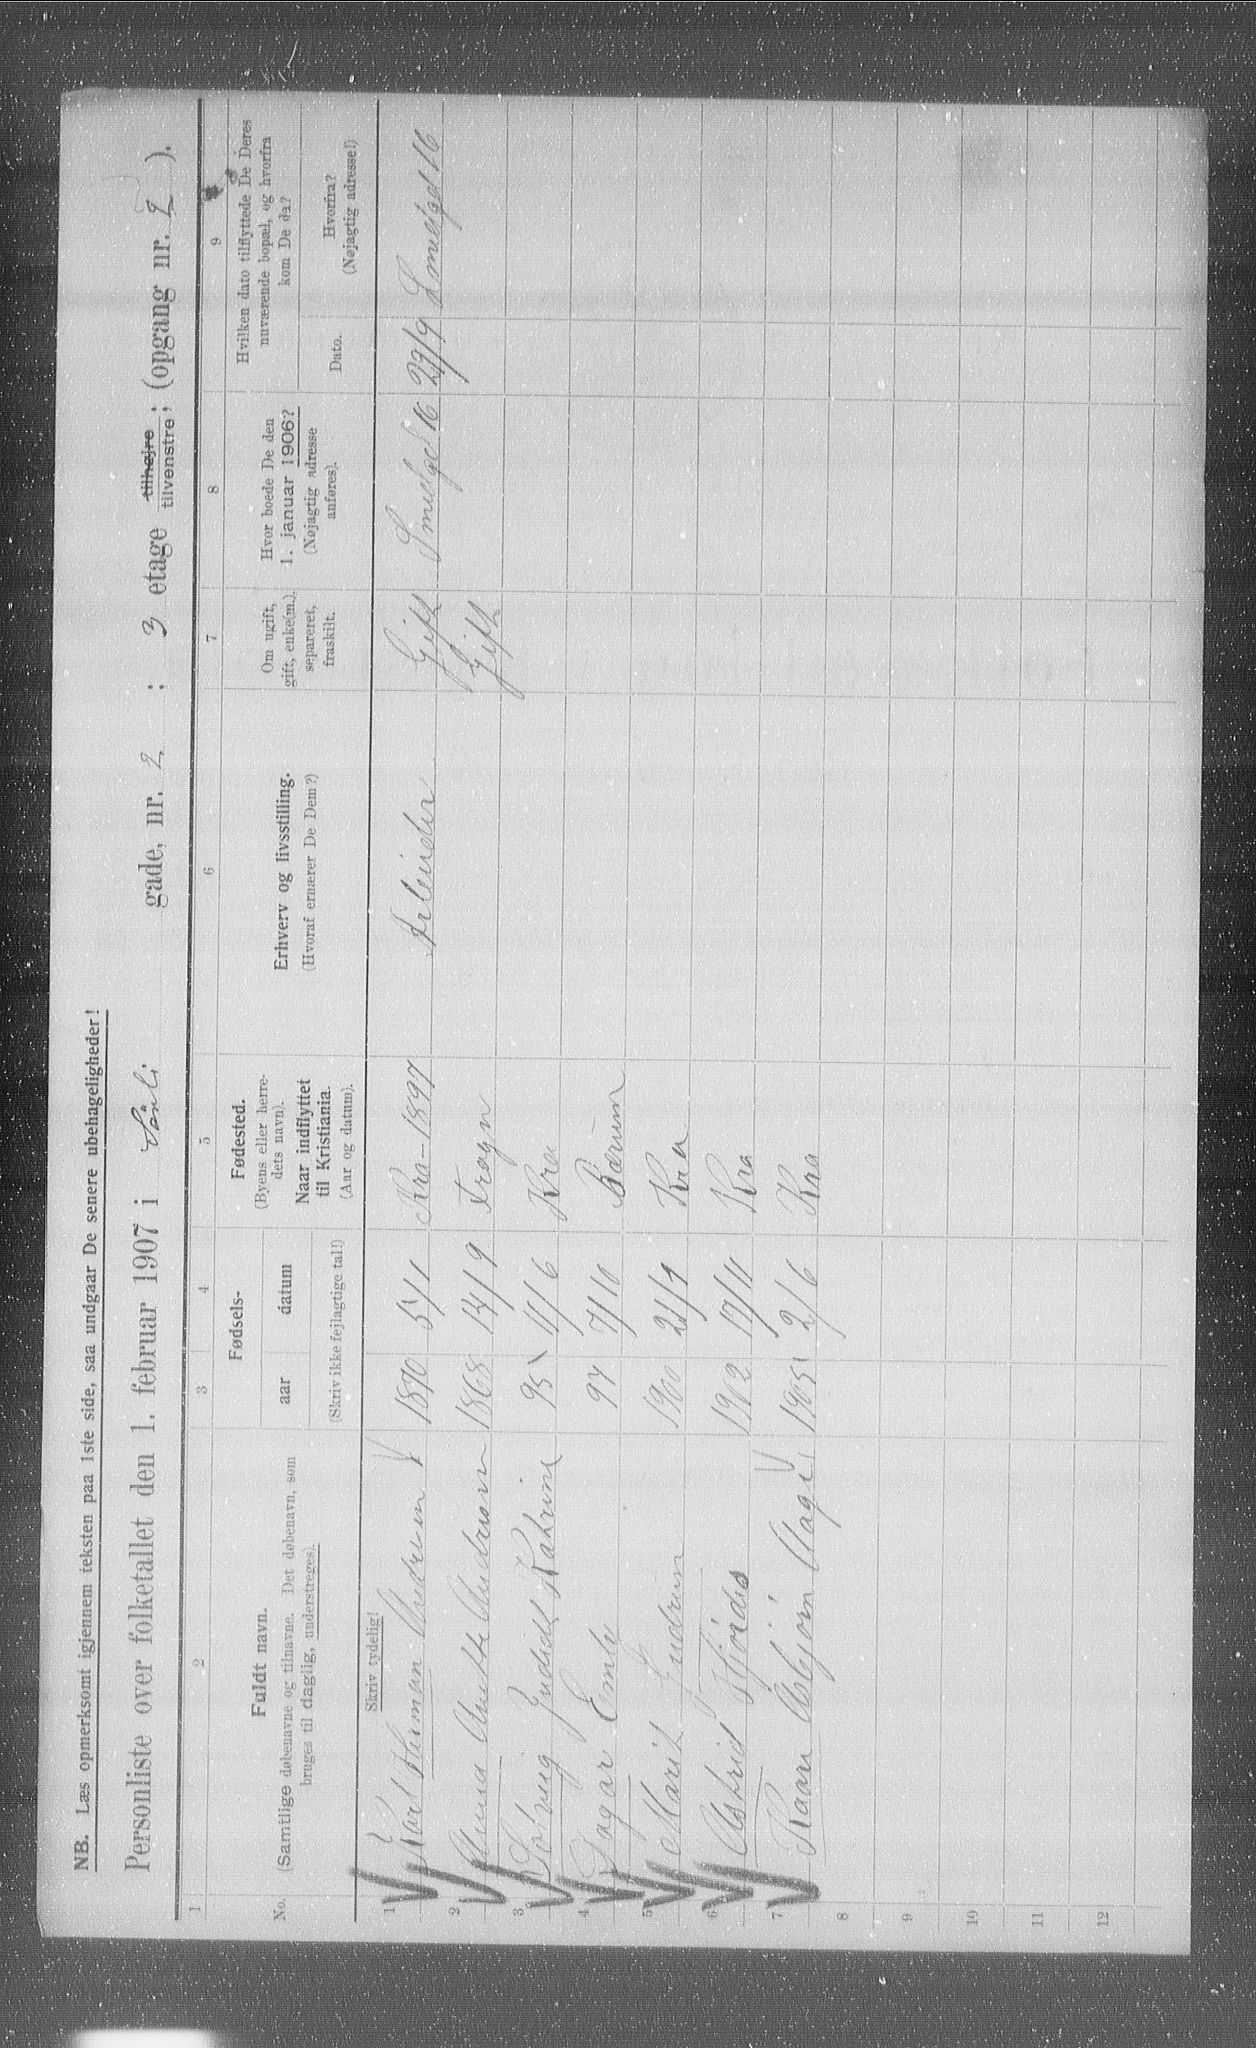 NB. Læs opmerksomt igjennem teksten paa 1ste side, saa undgaar De senere ubehageligheder!
Personliste over folketallet den 1. februar 1907 i Sønli gade, nr. 2 ; 3 etage tilhøjre tilvenstre; (opgang nr. 2 ).
1 2 3 4 5 6 7 8 9
No. Fuldt navn. (Samtlige døbenavne og tilnavne. Det døbenavn, som bruges til daglig, understreges). Fødsels- aar datum (Skriv ikke fejlagtige tal!) Fødested. (Byens eller herredets navn). Naar indflyttet til Kristiania. (Aar og datum). Erhverv og livsstilling. (Hvoraf ernærer De Dem?) Om ugift, gift, enke(m.), separeret, fraskilt. Hvor boede De den 1. januar 1906? (Nøjagtig adresse anføres). Hvilken dato tilflyttede De Deres nuværende bopæl, og hvorfra kom De da? Dato. Hvorfra? (Nøjagtig adresse!)
Skriv tydelig!
1 Karl Human Andersen 1870 5/1 Kra - 1897 Arbeider Gift Smedgd 16 29/9 Smedgad 16
2 Anna Anette Andersen 1868 14/9 Frogn Gift
3 Solveig Katrine 95 4/6 Kra
4 Dagar Emly 97 7/10 Bærum
5 Marit Gudrun 1900 21/1 Kra
6 Astrid Hjördis 1902 19/11 Kra
7 Roar Asbjørn Mage 1905 2/6 Kra
8
9
10
11
12